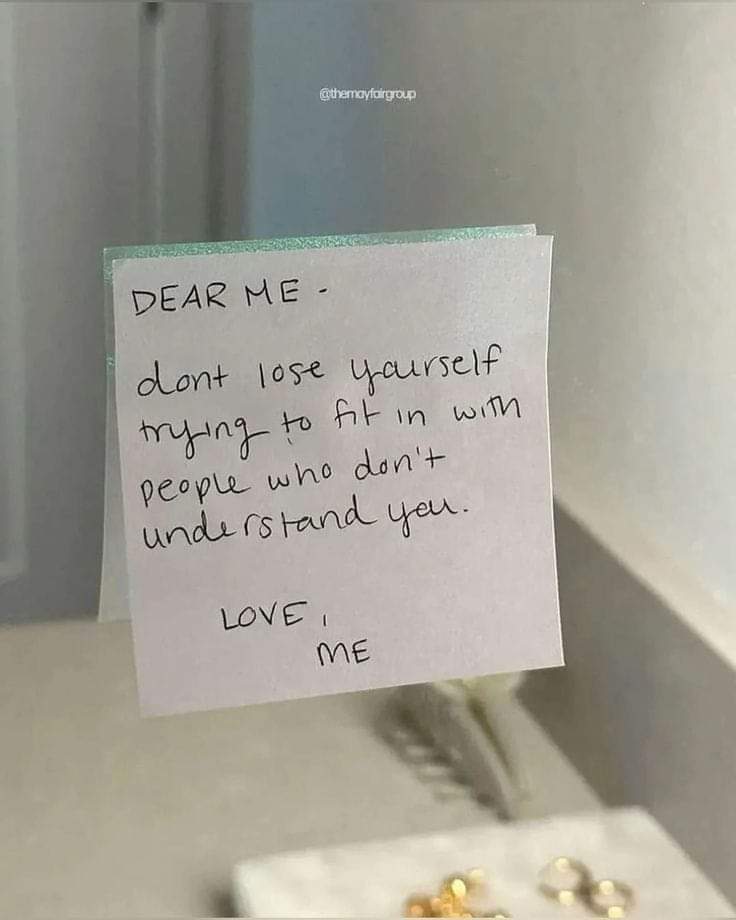 @themayfairgroup
DEAR ME -
dont lose yourself
trying to fit in with
people who don't
understand you.
LOVE,
ME